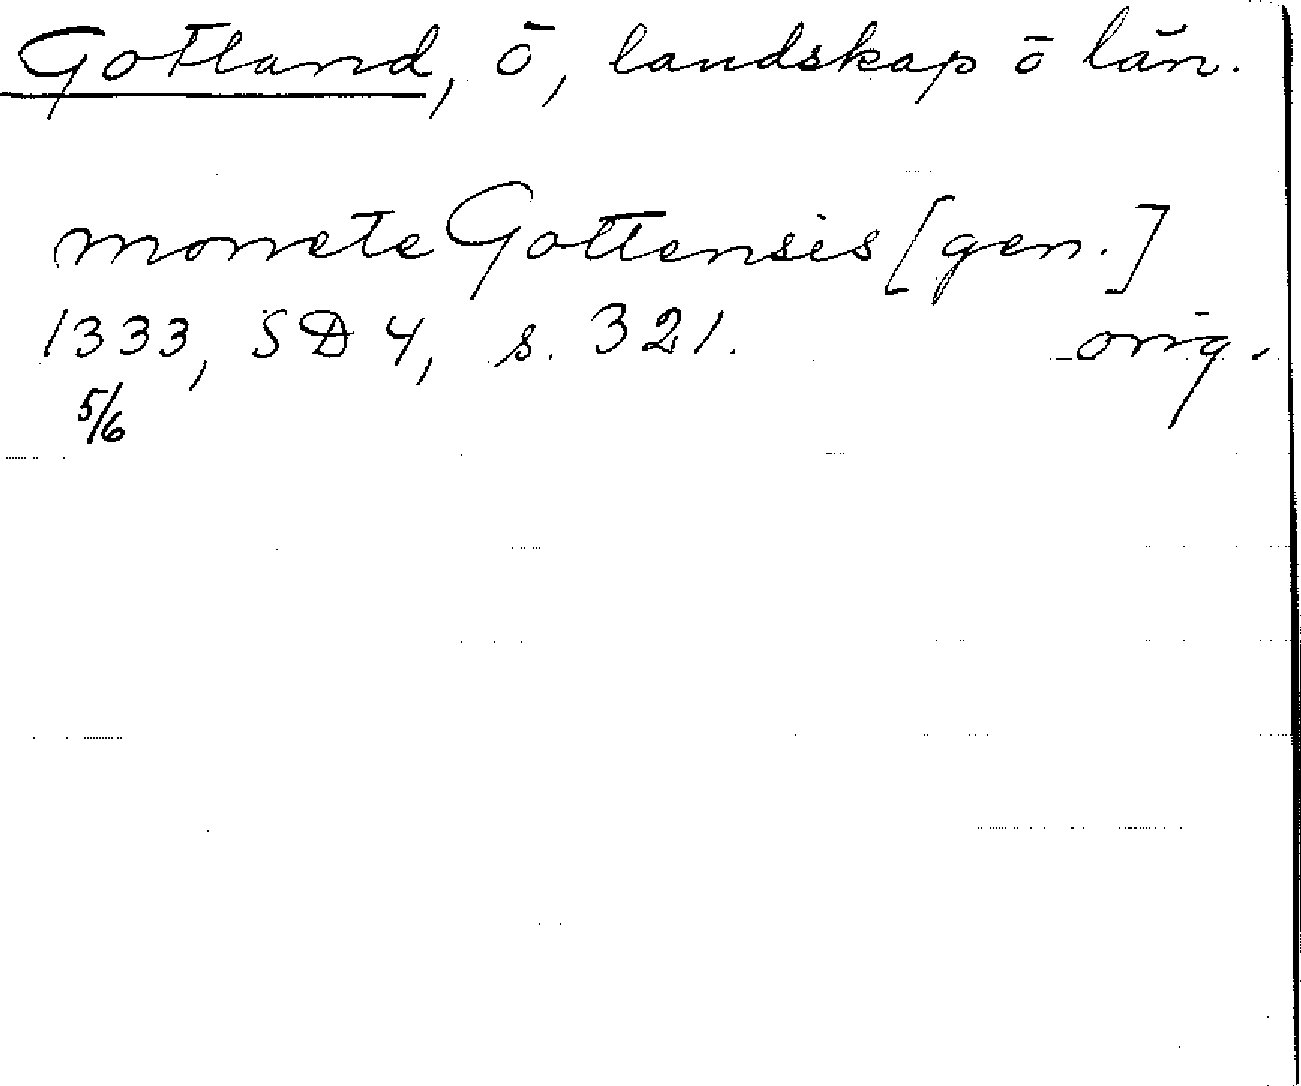 Gotland, ö, landskap o län.
monete Gottensis [gen.]
1333, SD 4, s. 321. orig.
5/6